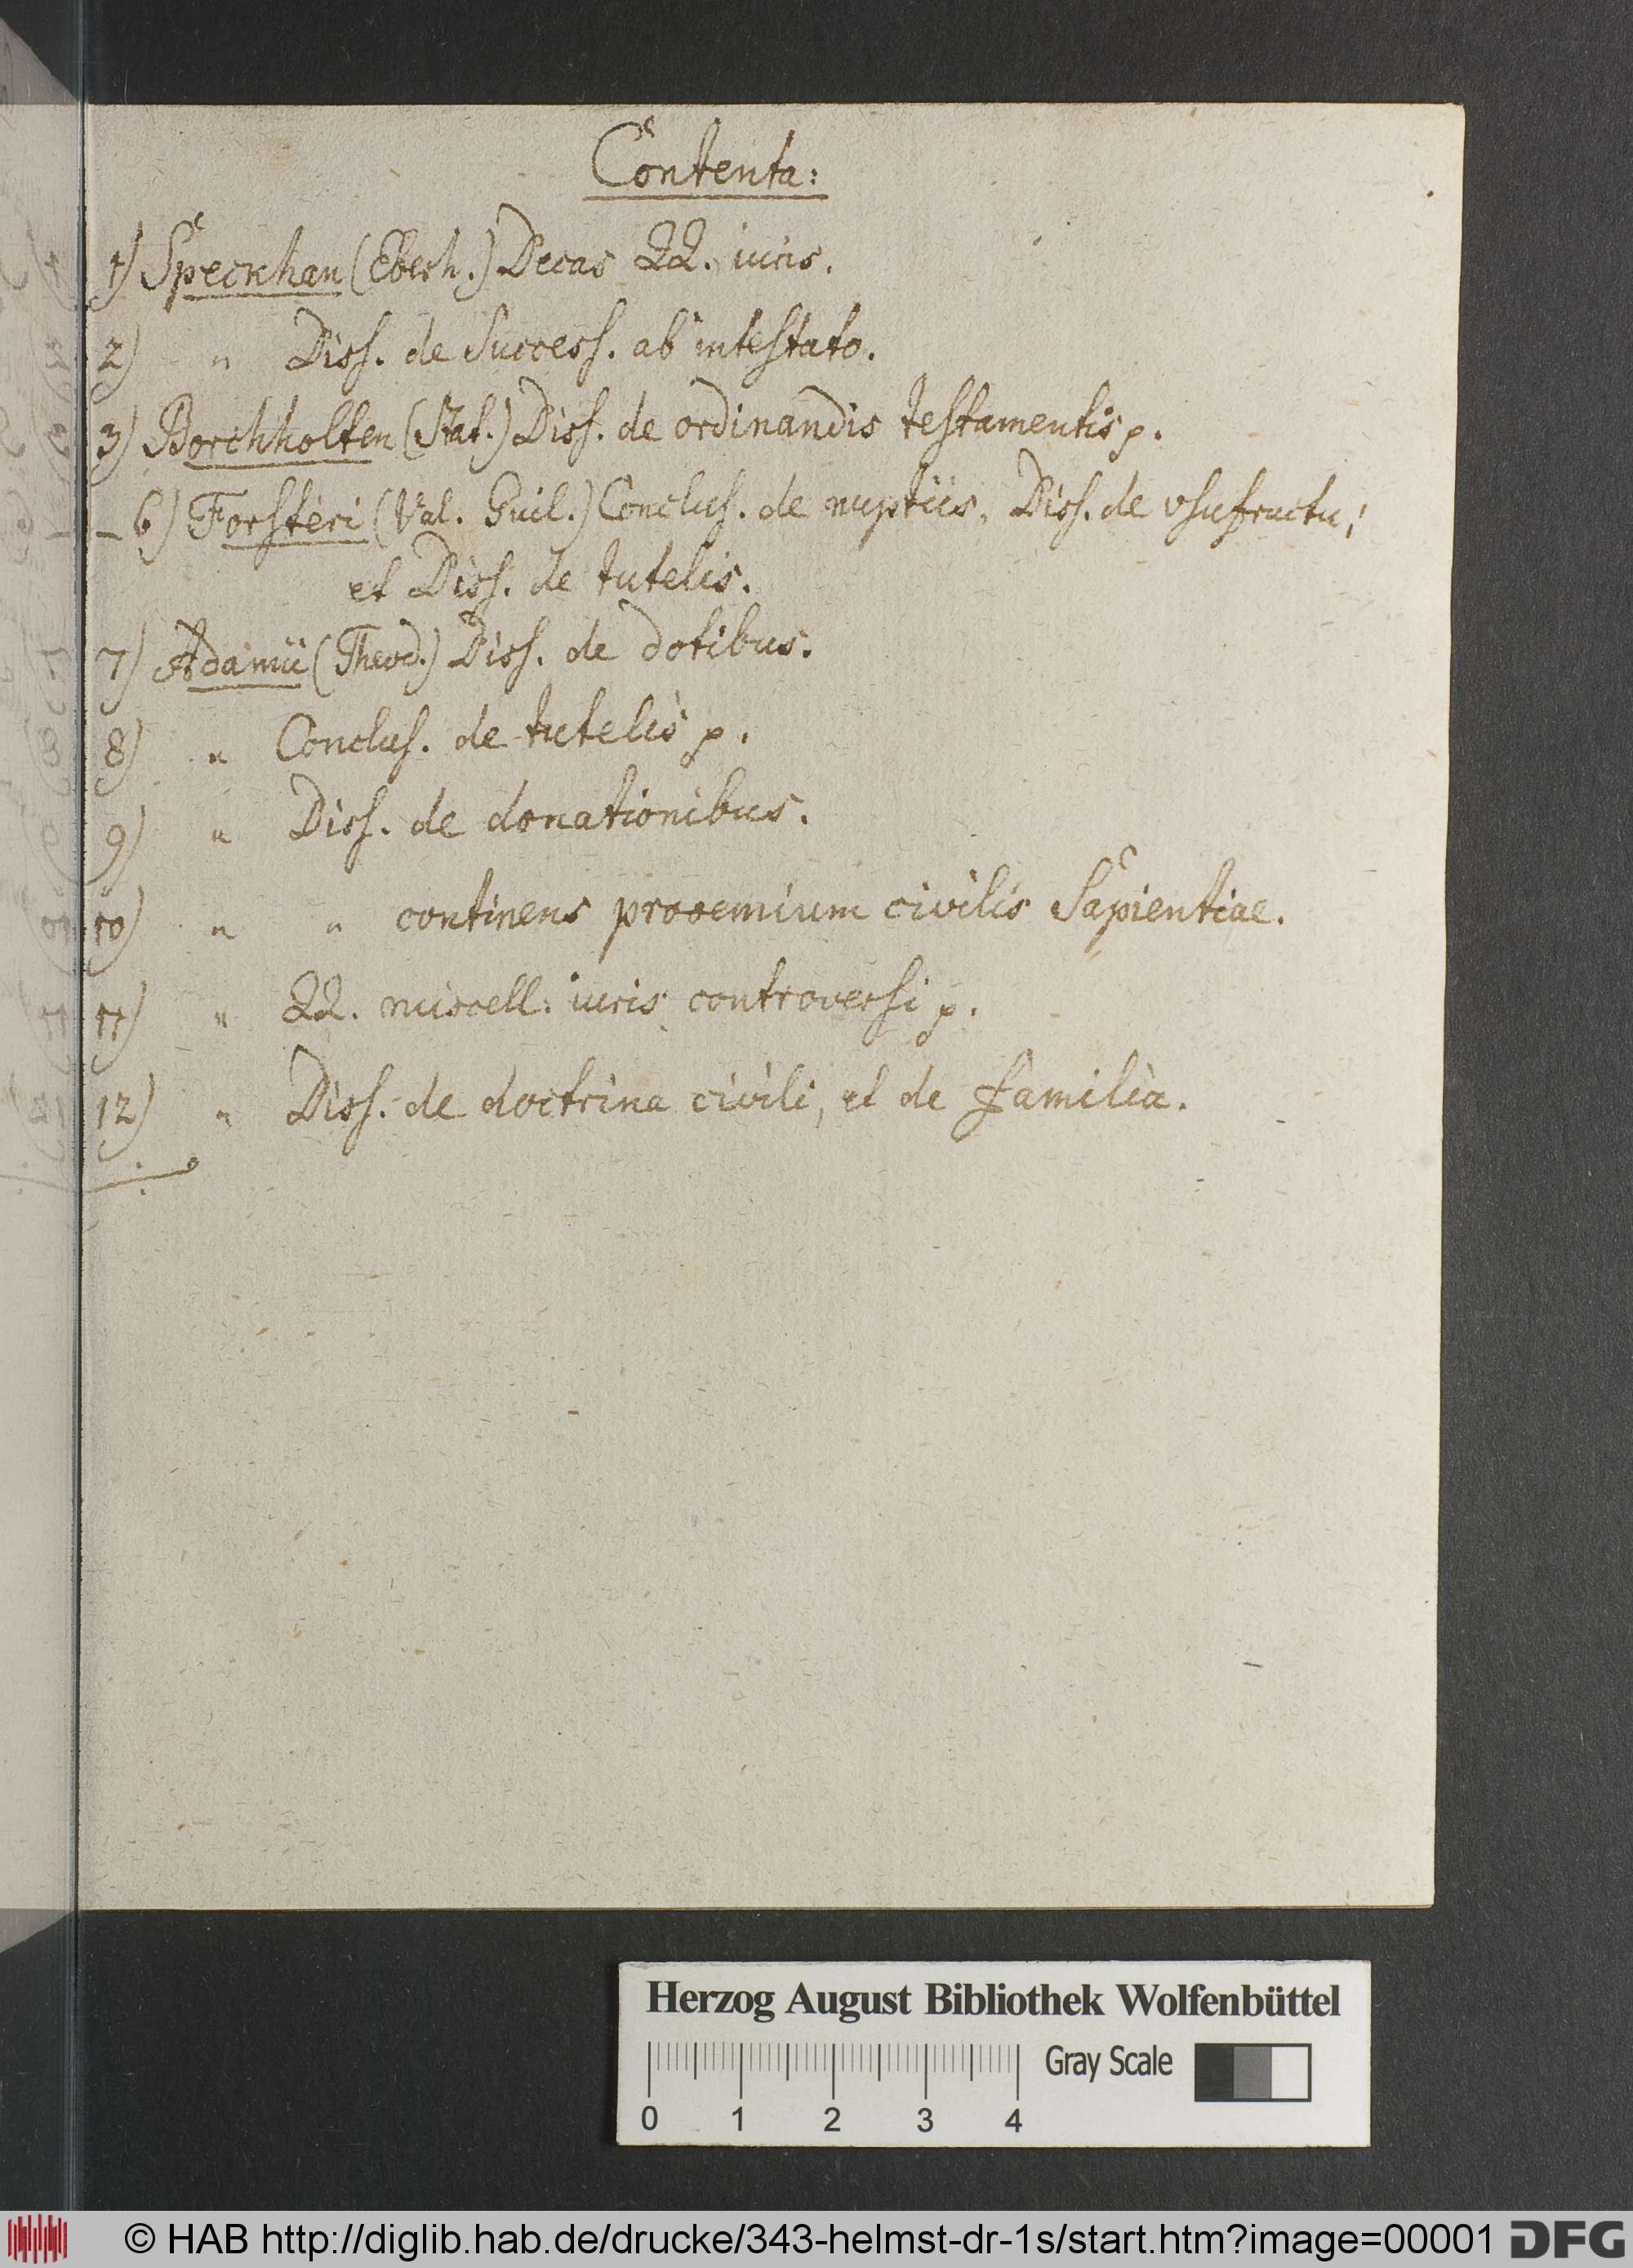 Contenta:
1) Speckhan (Eberh.) Decas QQ. iuris.
2) " Diss. de Success. ab intestato.
3) Borchholten (Stat.) Diss. de ordinandis testamentis p.
– 6) Forsteri (Val. Guil.) Conclus. de nuptiis, Diss. de vsufructu,
et Diss. de tutelis.
7) Adamii (Theod.) Diss. de dotibus.
8) " Conclus. de tutelis p.
9) " Diss. de donationibus.
10) " " continens prooemium civilis Sapientiae.
11) " QQ. miscell. iuris controversi p.
12) " Diss. de doctrina civili, et de familia.
Herzog August Bibliothek Wolfenbüttel
Gray Scale
0 1 2 3 4
© HAB http://diglib.hab.de/drucke/343-helmst-dr-1s/start.htm?image=00001 DFG